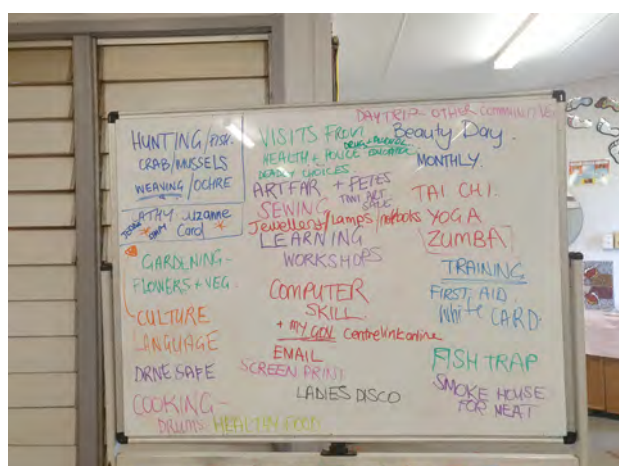 HUNTING/FISH.
CRAB/MUSSELS
WEAVING/OCHRE
CATHY Suzanne
Carol
GARDENING-
FLOWERS + VEG.
CULTURE
LANGUAGE
DRIVE SAFE
COOKING-
DRUMS HEALTHY FOOD
DAY TRIP - OTHER COMMUNITIES
VISITS FROM
HEALTH + POLICE
DRUG + ALCOHOL
EDUCATION
DEADLY CHOICES
ART FAIR + FETES
TIWI ART
SALE
SEWING
Jewellery/lamps/
LEARNING
WORKSHOPS
COMPUTER
SKILL
+ MY GOV Centrelink online
EMAIL
SCREEN PRINT
LADIES DISCO
Beauty Day.
MONTHLY.
TAI CHI.
YOGA
ZUMBA
TRAINING
FIRST AID
White CARD.
FISH TRAP
SMOKE HOUSE
FOR MEAT